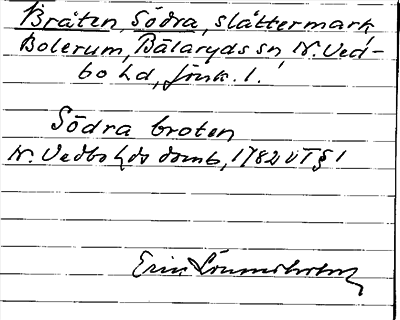 Bråten, Södra, slåttermark
Bolerum, Bälaryds sn, N. Ved-
bo hd, Jönk. l.
Södra broten
N. Vedbo hds domb, 1782 VT § 1
Erik